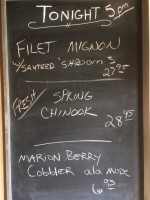 TONIGHT 5pm
FILET MIGNON
W/SAUTEED 'SHROOMS
27⁹⁵
FRESH SPRING
CHINOOK
28⁹⁵
MARION BERRY
COBBLER ala MODE
6⁹⁵